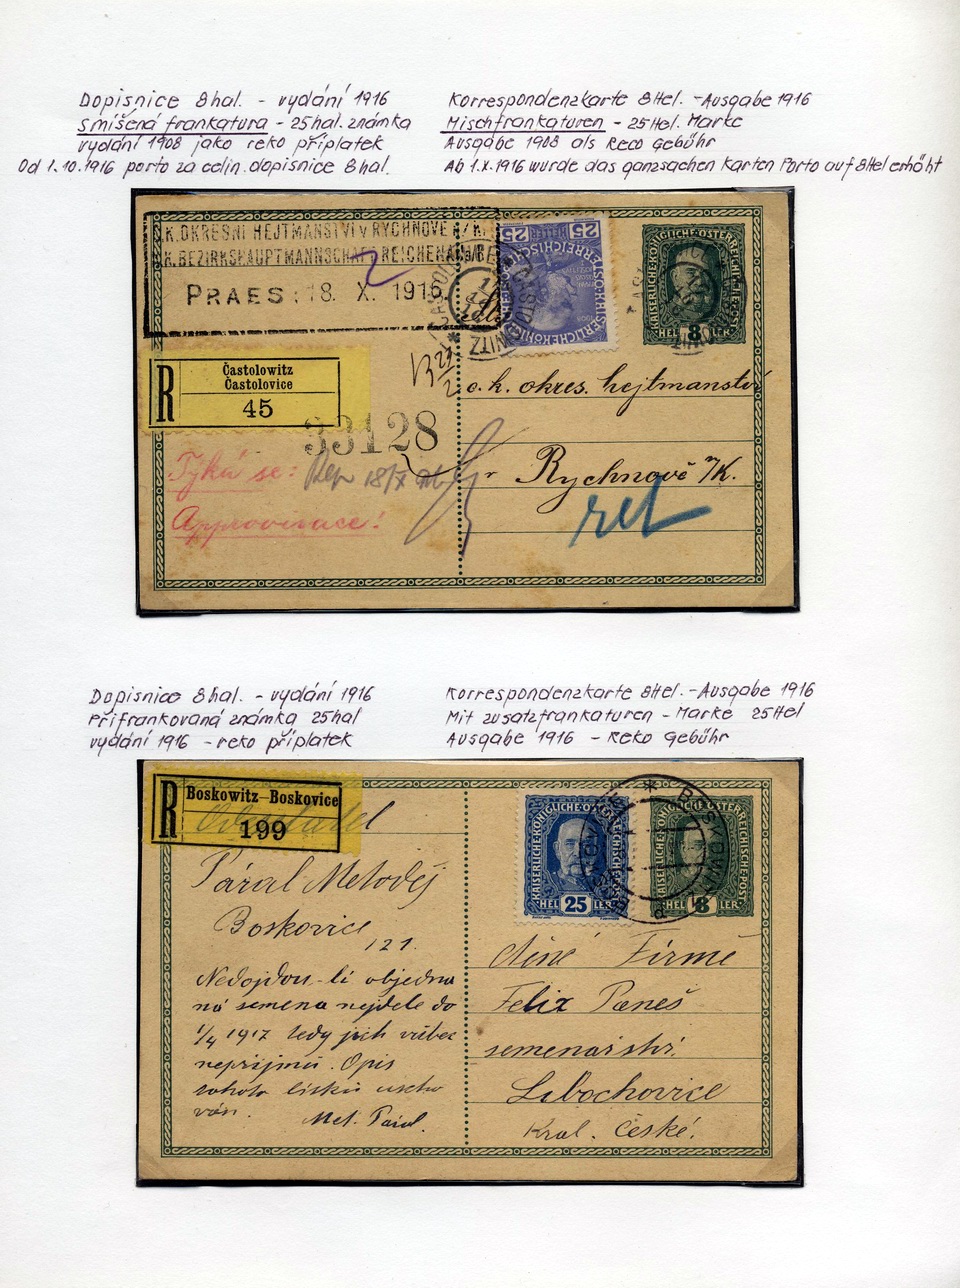 Dopisnice 8hal. - vydání 1916
smíšená frankatura - 25hal. známka
vydání 1908 jako reko příplatek
Od 1.10.1916 porto za celin. dopisnice 8hal.
Korrespondenzkarte 8Hel. - Ausgabe 1916
Mischfrankaturen - 25Hel. Marke
Ausgabe 1908 als Reco Gebühr
Ab 1.X.1916 wurde das ganzsachen Karten Porto auf 8Hel erhöht
K. OKRESNÍ HEJTMANSTVÍ V RYCHNOVĚ n/K.
K. BEZIRKSHAUPTMANNSCHAFT REICHENAU
PRAES: 18. X. 1916
25 25
KAISERLICHE KÖNIGLICHE ÖSTERREICHISCHE POST
HEL 8 LER
R
Častolowitz
Častolovice
45
33128
Týká se:
Approvisace!
c. k. okres. hejtmanství
v Rychnově n/K.
Dopisnice 8hal. - vydání 1916
Přifrankovaná známka 25hal
vydání 1916 - reko příplatek
Korrespondenzkarte 8Hel. - Ausgabe 1916
Mit zusatzfrankaturen - Marke 25Hel
Ausgabe 1916 - Reko Gebühr
R
Boskowitz - Boskovice
199
Páral Metoděj
Boskovice
121.
Nedojdou-li objedna
ná semena nejdéle do
1/4 1917 tedy jich vůbec
nepřijmu. Opis
tohoto lístku uscho
ván.
Met. Páral.
KAISERLICHE KÖNIGLICHE ÖSTERREICHISCHE POST
HEL 25 LER
KAISERLICHE KÖNIGLICHE ÖSTERREICHISCHE POST
HEL 8 LER
BOSKOWITZ
Firmě
Felix Paneš
semenářství
Libochovice
Král. České.